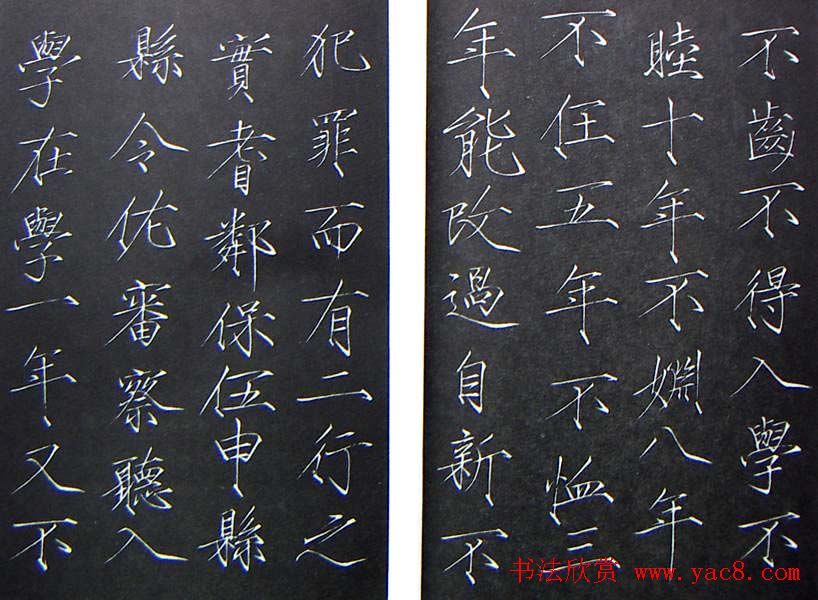 不齒不得入學不
睦十年不婣八年
不任五年不恤三
年能改過自新不
犯罪而有二行之
實耆鄰保伍申縣
縣令佐審察聽入
學在學一年又不
书法欣赏 www.yac8.com